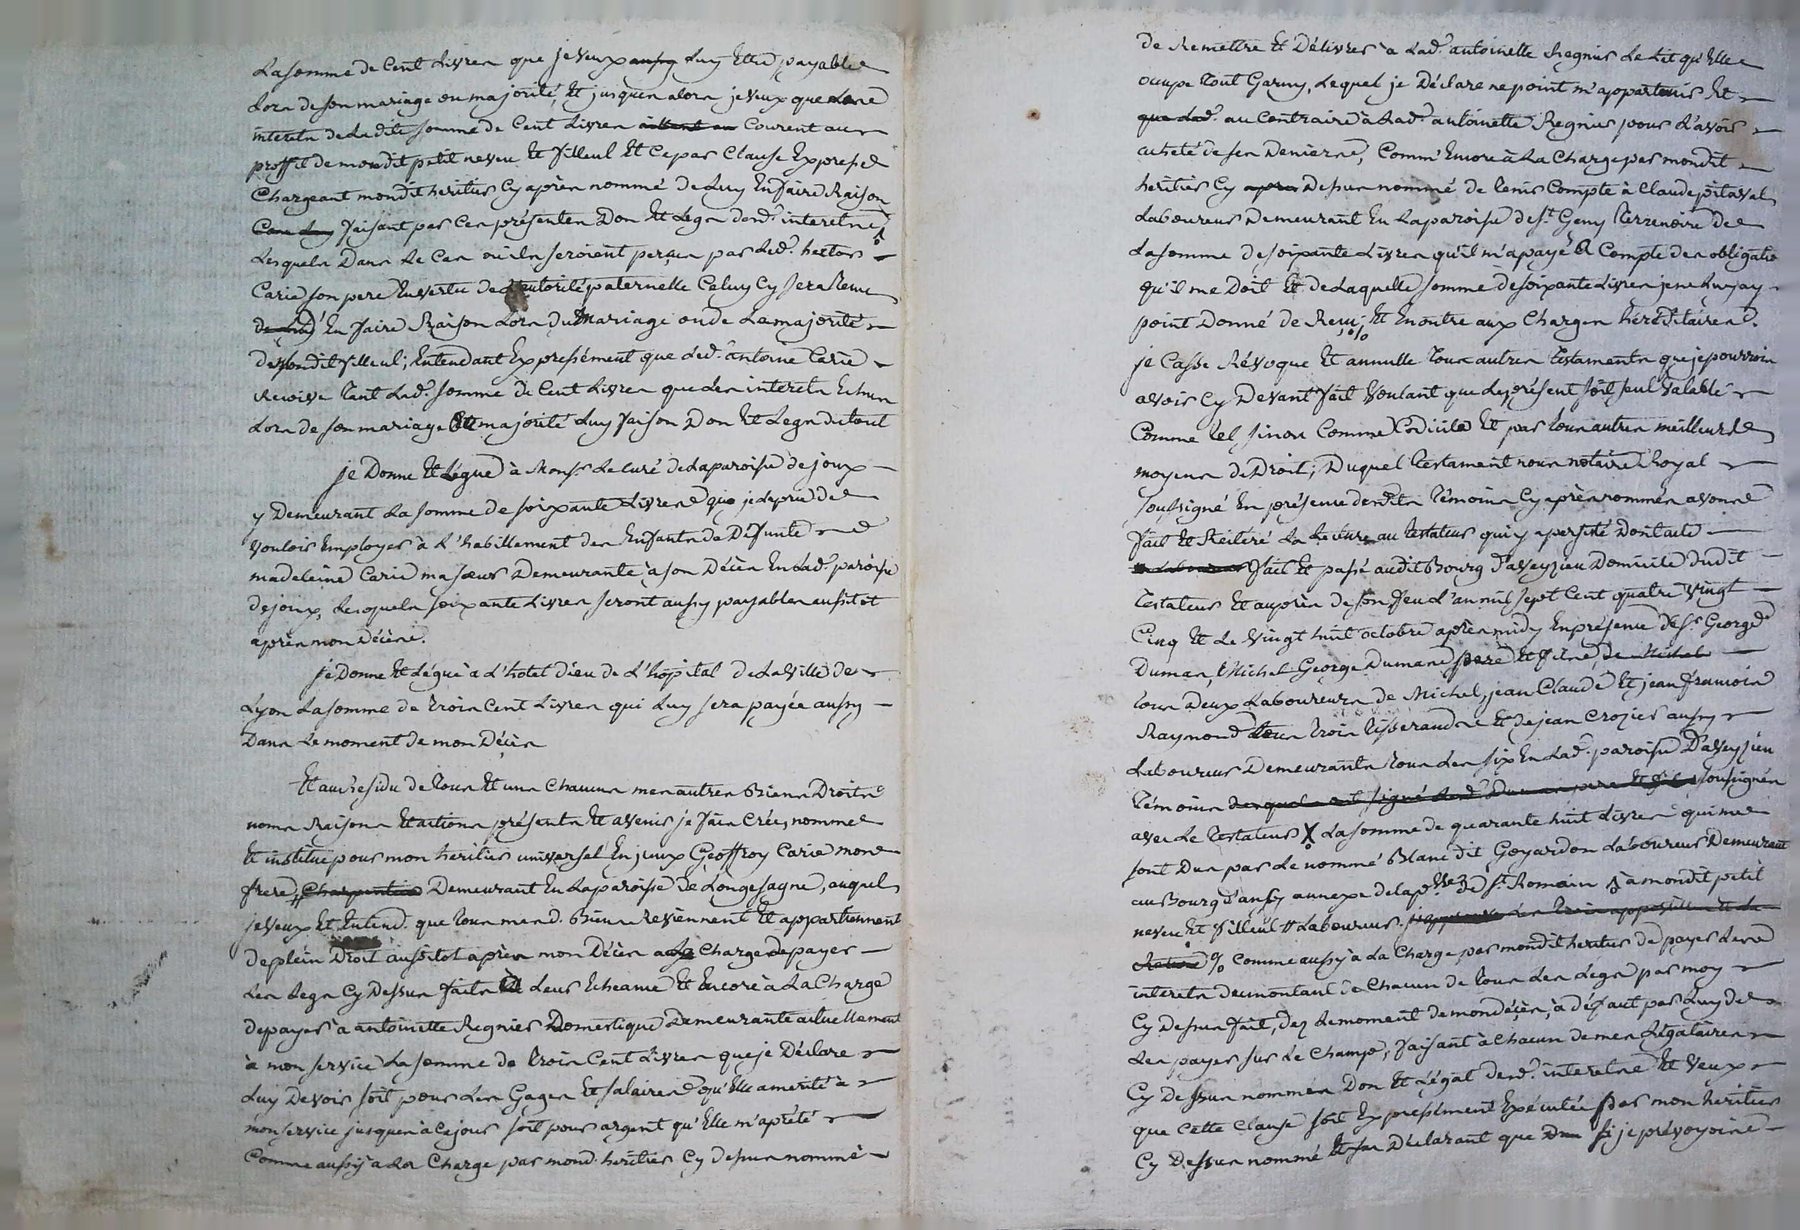 La somme de Cent Livres que je veux aussy Luy Etre payable
Lors de son mariage ou majorité, Et jusques alors je veux que Les
interets de Ladite somme de Cent Livres Courent au
proffit de mondit petit neveu Et filleul Et Ce par Clause Expresse
Chargeant mondit heritier Cy après nommé de Luy En faire Raison
faisant par Ces présentes Don Et Legs desd. interets
Lesquels Dans Le Cas ou ils seroient perçus par Led. hector
Carie son pere En vertu de L'autorité paternelle Celuy Cy sera tenu
En faire Raison Lors du Mariage ou de La majorité
de mondit filleul; Entendant Expressément que Led. antoine Carie
Reçoive tant Lad. somme de Cent Livres que Les interets Echus
Lors de son mariage Et majorité Luy faison Don Et Legs du tout
je Donne Et Légue à Monsr. Le curé de La paroisse de joux
y Demeurant La somme de soixante Livres que je Le prie de
vouloir Employer à L'habillement des Enfants de Défunte
madeleine Carie ma sœur Demeurante à son Décès En Lad. paroisse
de joux, Lesquels soixante Livres seront aussy payables aussitot
après mon Décès.
je Donne Et Légue à L'hotel dieu de L'hôpital de La Ville de
Lyon La somme de trois Cent Livres qui Luy sera payée aussy
Dans Le moment de mon Décès
Et au résidu de tous Et uns Chacuns mes autres Biens Droits
noms Raisons Et actions présents Et avenir je fais Crée, nomme
Et institue pour mon heritier universel En jceux Geoffroy Carie mon
frere, Charpentier Demeurant En La paroisse de Longesagne, auquel
je veux Et Entend que tous mesd. Biens Reviennent Et appartiennent
de plein Droit aussitot après mon Décès à La Charge de payer
Les Legs Cy Dessus faits à Leur Echeance Et Encore à La Charge
de payer à antoinette Regnier Domestique Demeurante actuellement
à mon service La somme de trois Cent Livres que je Déclare
Luy Devoir soit pour Les Gages Et salaires qu'Elle a merité à
mon service jusques à Ce jour soit pour argent qu'Elle m'a prété
Comme aussy à La Charge par mond. heritier Cy dessus nommé
de Remettre Et Délivrer à Lad. antoinette Regnier Le Lit qu'Elle
occupe tout Garny, Lequel je Déclare ne point m'appartenir Et
que Lad. au Contraire à Lad. antoinette Regnier pour L'avoir
acheté de ses Deniers, Comm' Encore à La Charge par mondit
heritier Cy apres Dessus nommé de tenir Compte à Claude pitaval
Laboureur Demeurant En La paroisse de St. Geny Terrenoire de
La somme de soixante Livres qu'il m'a payé à Compte des obligatio
qu'il me Doit Et de Laquelle somme de soixante Livres je ne Luy ay
point Donné de Reçu; Et En outre aux Charges héréditaires.
je Casse Révoque Et annulle tous autres testaments que je pourrois
avoir Cy Devant fait Voulant que Le présent soit seul Valable
Comme tel sinon Comme Codicile Et par tous autres meilleurs
moyens de Droit; Duquel testament nous notaire Royal
soussigné En présence desdits témoins Cy après nommés avons
fait Et Réiteré La Lecture au testateur qui y a persisté Dont acte
fait Et passé audit Bourg d'aveyzieu Domicile dudit
testateur Et auprès de son feu L'an mil sept Cent quatre Vingt
Cinq Et Le Vingt huit octobre après midy En présence de Sr. George
Dumas, Michel George Dumas pere Et fils, de Michel
tous Deux Laboureurs de Michel, jean Claude Et jean francois
Raymond tous trois tisserands Et de jean Crozier aussy
Laboureur Demeurants tous Les six En Lad. paroisse D'aveyzieu
témoins soussignés
avec Le testateur X La somme de quarante huit Livres qui me
sont Dus par Le nommé Blanc dit Goyardon Laboureur Demeurant
au Bourg d'ansy annexe de La psse. de St. Romain à mondit petit
neveu Et filleul # Laboureur.
% Comme aussy à La Charge par mondit heritier de payer Les
interets du montant de Chacun de tous Les Legs par moy
Cy Dessus fait, des Le moment de mon décès, à défaut par Luy de
Les payer sur Le Champ, faisant à Chacun de mes Légataires
Cy Dessus nommés Don Et Légat desd. interets Et Veux
que Cette Clause soit Expressément Exécutée par mon heritier
Cy Dessus nommé Déclarant que si je prévoyois